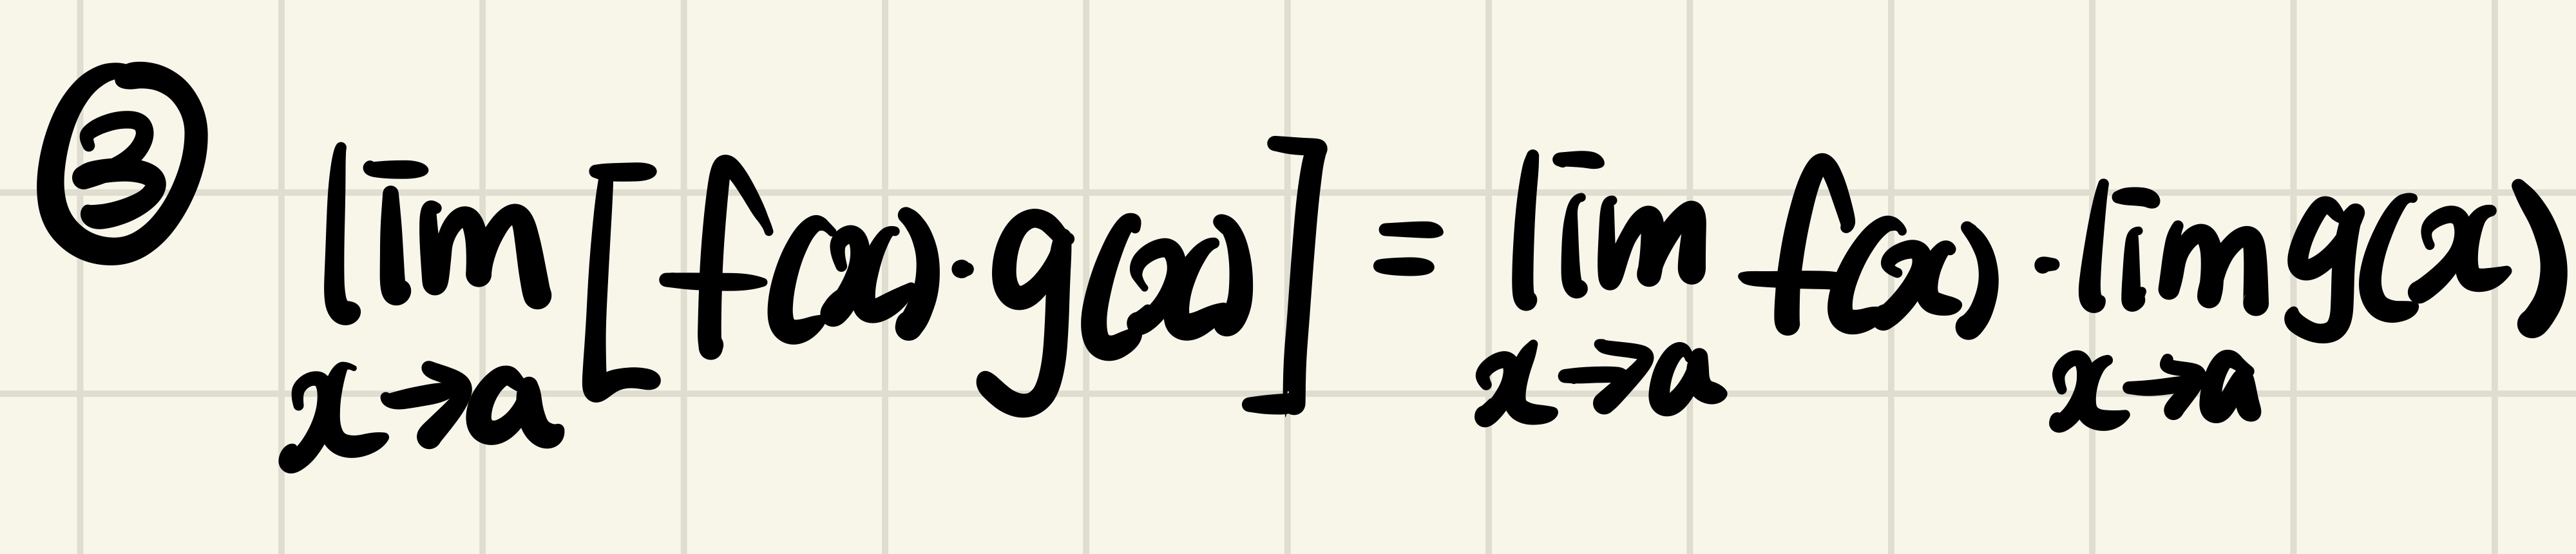 ③ lim x→a [f(x)·g(x)] = lim x→a f(x) · lim x→a g(x)